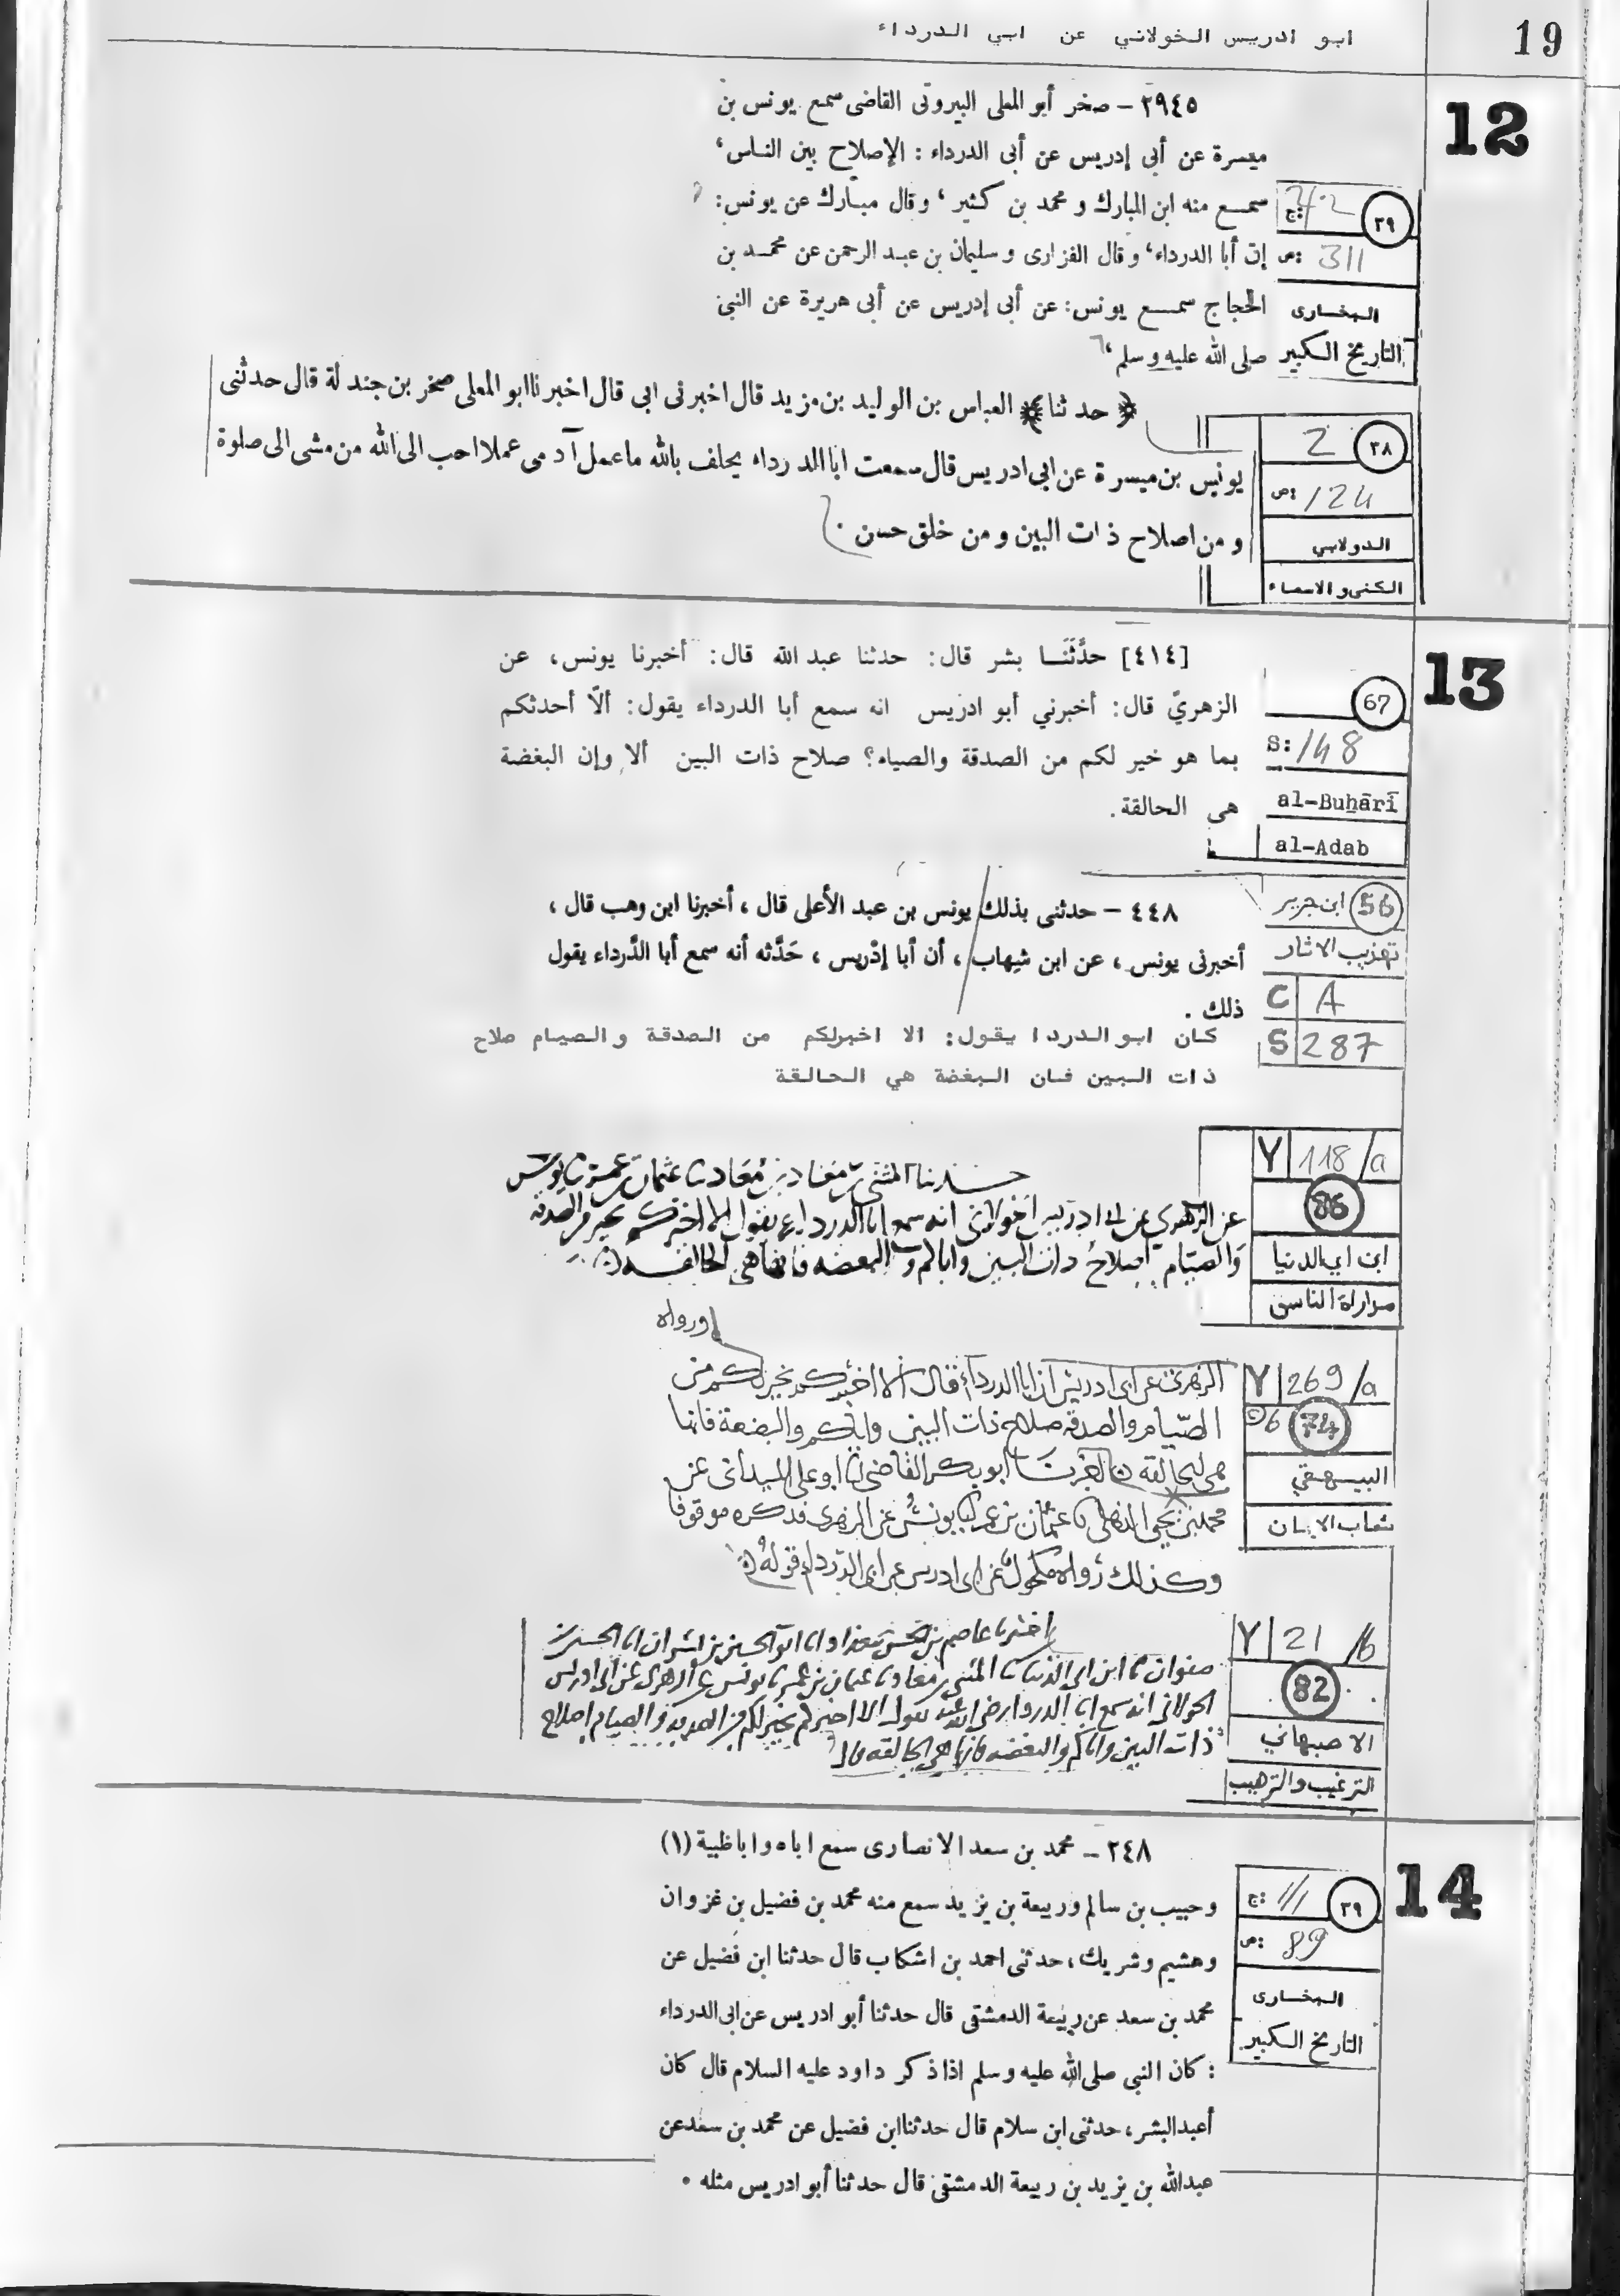 19
ابو ادريس الخولاني عن ابي الدرداء
12
٢٩٤٥ - صخر أبو المعلى البيروتى القاضى سمع يونس بن
ميسرة عن أبى إدريس عن أبى الدرداء : الإصلاح بين الناس،
سمع منه ابن المبارك و محمد بن كثير، وقال مبارك عن يونس:
إن أبا الدرداء، وقال الفزارى و سليمان بن عبد الرحمن عن محمد بن
الحجاج سمع يونس: عن أبى إدريس عن أبى هريرة عن النبى
صلى الله عليه وسلم،
٣٩
ج:
ص: 311
البخارى
التاريخ الكبير
﴿ حدثنا ﴾ العباس بن الوليد بن مزيد قال اخبرنى ابى قال اخبرنا ابو المعلى صخر بن جندلة قال حدثنى
يونس بن ميسرة عن ابى ادريس قال سمعت ابا الدرداء يحلف بالله ما عمل آدمى عملا احب الى الله من مشى الى صلوة
و من اصلاح ذات البين و من خلق حسن .
٣٨
2
ص: 124
الدولابي
الكنى والاسماء
13
[٤١٤] حدَّثَنَا بشر قال: حدثنا عبد الله قال: أخبرنا يونس، عن
الزهريّ قال: أخبرني أبو ادريس انه سمع أبا الدرداء يقول: ألّا أحدثكم
بما هو خير لكم من الصدقة والصيام؟ صلاح ذات البين ألا وإن البغضة
هي الحالقة.
67
S: 148
al-Buḫārī
al-Adab
٤٤٨ - حدثنى بذلك يونس بن عبد الأعلى قال ، أخبرنا ابن وهب قال ،
أخبرنى يونس ، عن ابن شهاب ، أن أبا إدْريس ، حَدَّثه أنه سمع أبا الدَّرداء يقول
ذلك .
كان ابو الدردا يقول: الا اخبرلكم من الصدقة والصيام صلاح
ذات البين فان البغضة هي الحالقة
56 ابن جرير
تهذيب الاثار
C A
S 287
حدثنا المثنى بن معاذ بن معاذ نا عثمان بن عمر نا يونس
عن الزهرى عن ابى ادريس الخولانى انه سمع ابا الدرداء يقول الا اخبركم بخير من الصدقة
والصيام اصلاح ذات البين واياكم والبغضه فانها هى الحالقه
Y 118/a
86
ابن ابي الدنيا
مداراة الناس
ورواه
الزهرى عن ابى ادريس ان ابا الدرداء قال الا اخبركم بخير لكم من
الصّيام والصدقة صلاح ذات البين واياكم والبغضة فانها
هى الحالقه اخبرنا ابو بكر القاضى انا ابو على الميدانى عن
محمد بن يحيى الذهلى نا عثمان بن عمر انا يونس عن الزهرى فذكره موقوفا
وكذلك رواه مكحول عن ابى ادريس عن ابى الدرداء قوله
Y 269/a
6 74
البيهقي
شعاب الايمان
اخبرنا عاصم بن الحسن ببغداد انا ابو الحسين بن بشران انا الحسين بن
صفوان نا ابن ابى الدنيا نا المثنى بن معاذ نا عثمان بن عمر نا يونس عن الزهرى عن ابى ادريس
الخولانى انه سمع ابا الدرداء رضى الله عنه يقول الا اخبركم بخير لكم من الصدقة والصيام اصلاح
ذات البين واياكم والبغضه فانها هى الحالقه
Y 21/b
82
الاصبهاني
الترغيب والترهيب
14
٢٤٨ - محمد بن سعد الانصارى سمع اباه و ابا ظبية (١)
وحبيب بن سالم وربيعة بن يزيد سمع منه محمد بن فضيل بن غزوان
وهشيم وشريك، حدثنى احمد بن اشكاب قال حدثنا ابن فضيل عن
محمد بن سعد عن ربيعة الدمشقى قال حدثنا أبو ادريس عن ابى الدرداء
: كان النبى صلى الله عليه وسلم اذا ذكر داود عليه السلام قال كان
أعبد البشر، حدثنى ابن سلام قال حدثنا ابن فضيل عن محمد بن سعد عن
عبدالله بن يزيد بن ربيعة الدمشقى قال حدثنا أبو ادريس مثله .
٣٩
ج: 1/1
ص: 89
البخارى
التاريخ الكبير